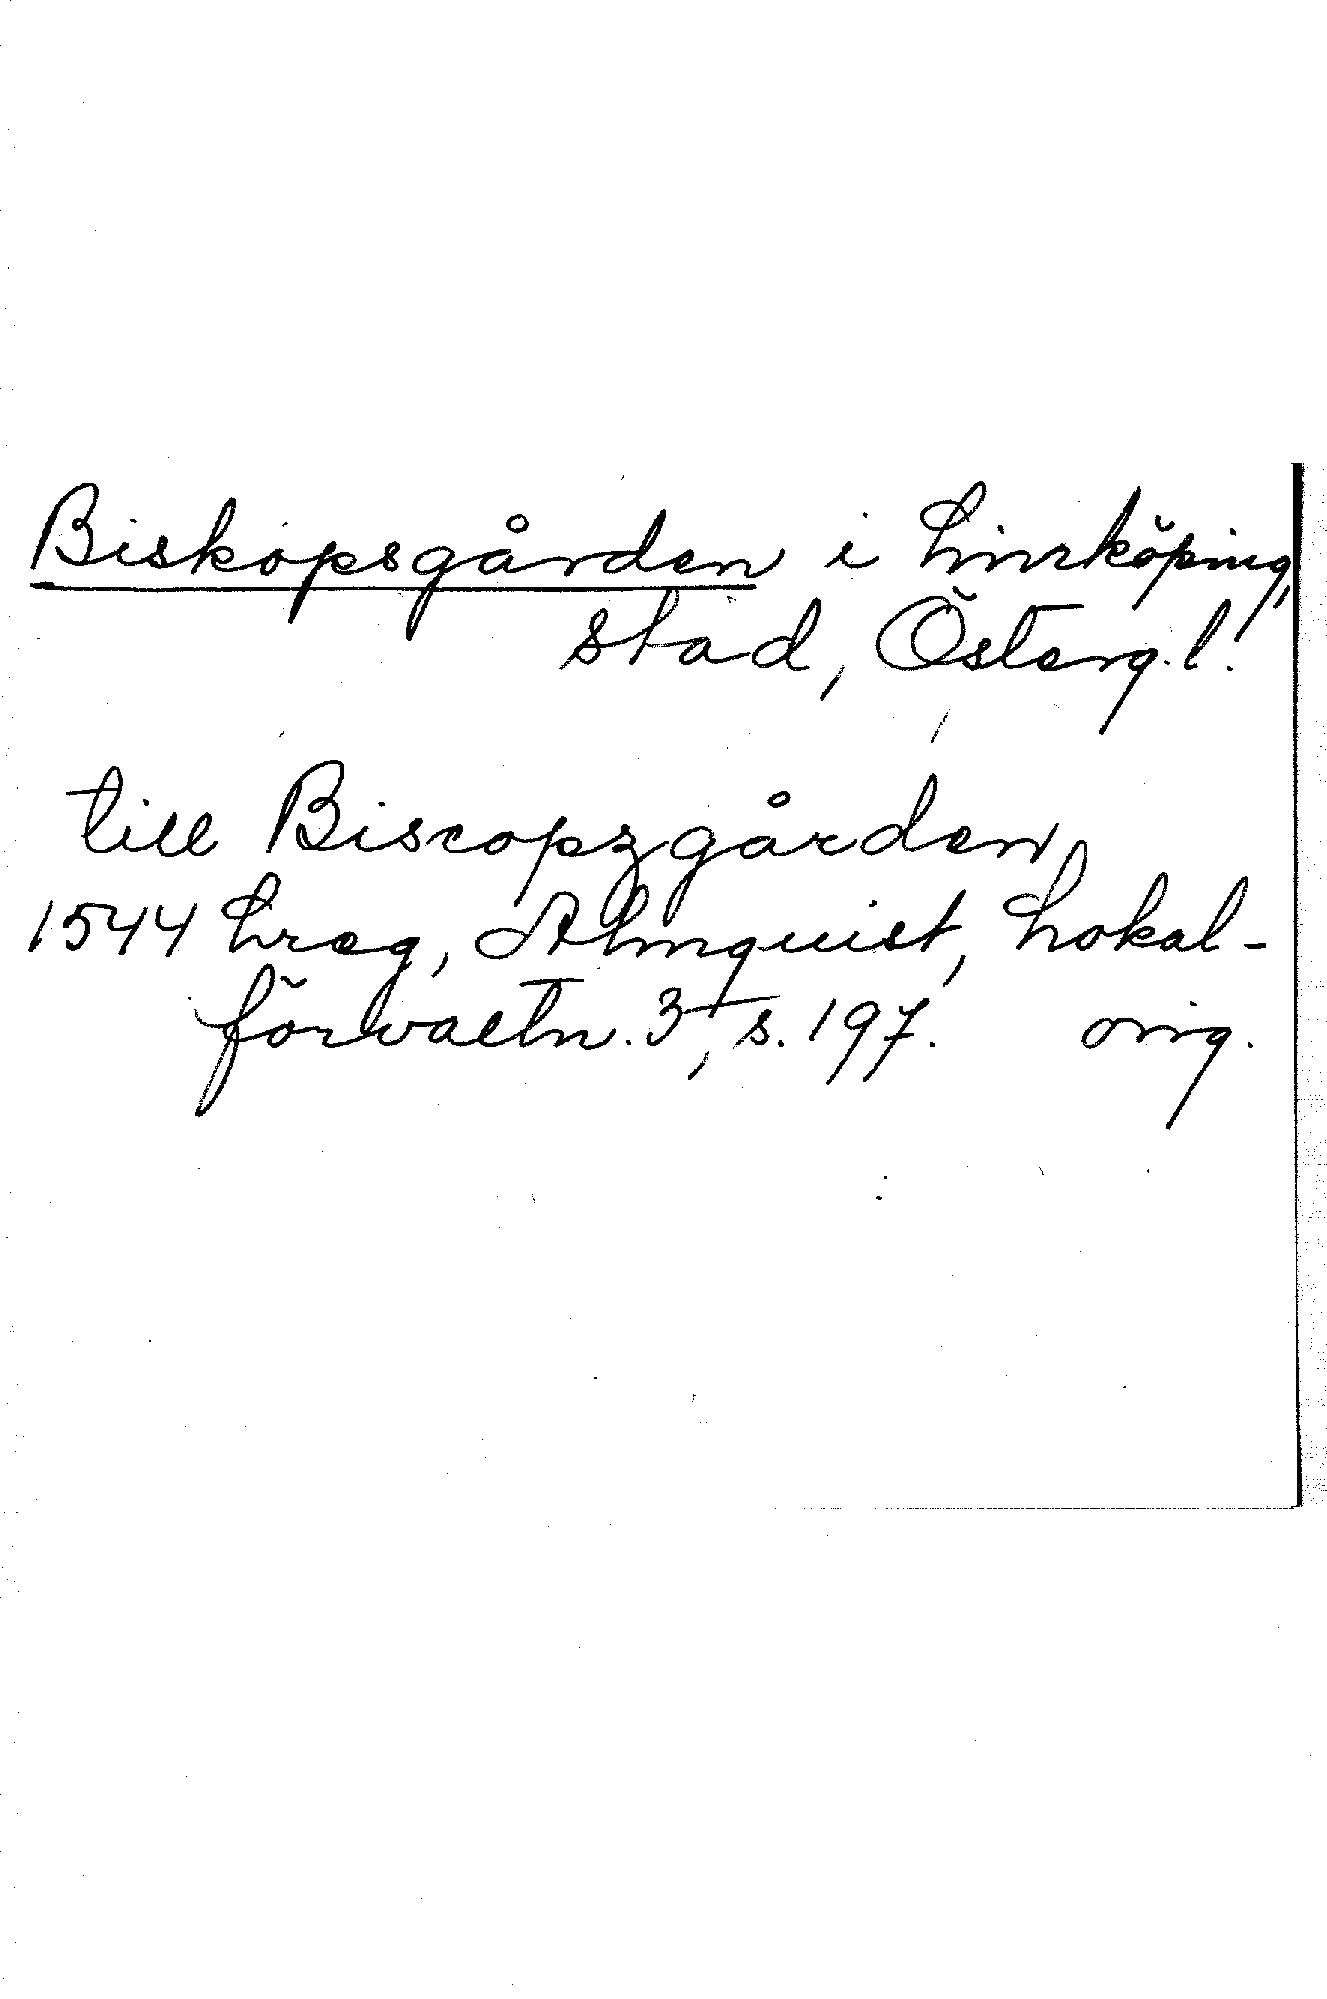 Biskopsgården i Linköping,
stad, Österg.l.
till Biscopzgården
1544 Lreg, Almquist, Lokal-
förvaltn. 3, s. 197. orig.